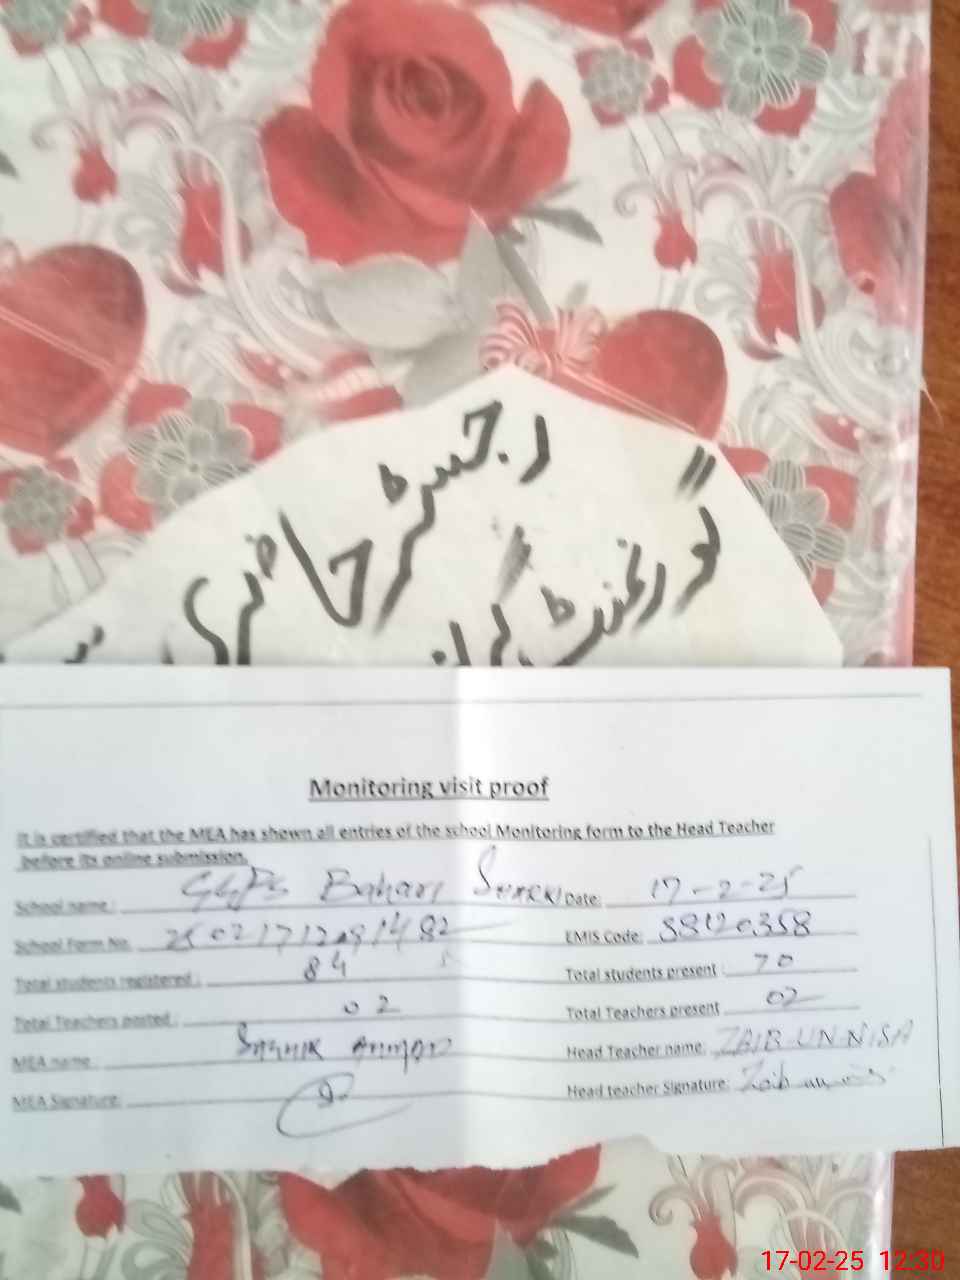 رجسٹر حاضری
گورنمنٹ گرلز
Monitoring visit proof
It is certified that the MEA has shown all entries of the school Monitoring form to the Head Teacher
before its online submission.
School name: GGPS Date: 17-2-25
School Form No. EMIS Code: 38120358
Total students registered: 84 Total students present: 70
Total Teachers posted: 02 Total Teachers present 02
MEA name: Head Teacher name: ZAIB-UN-NISA
MEA Signature: Head teacher Signature:
17-02-25 12:30